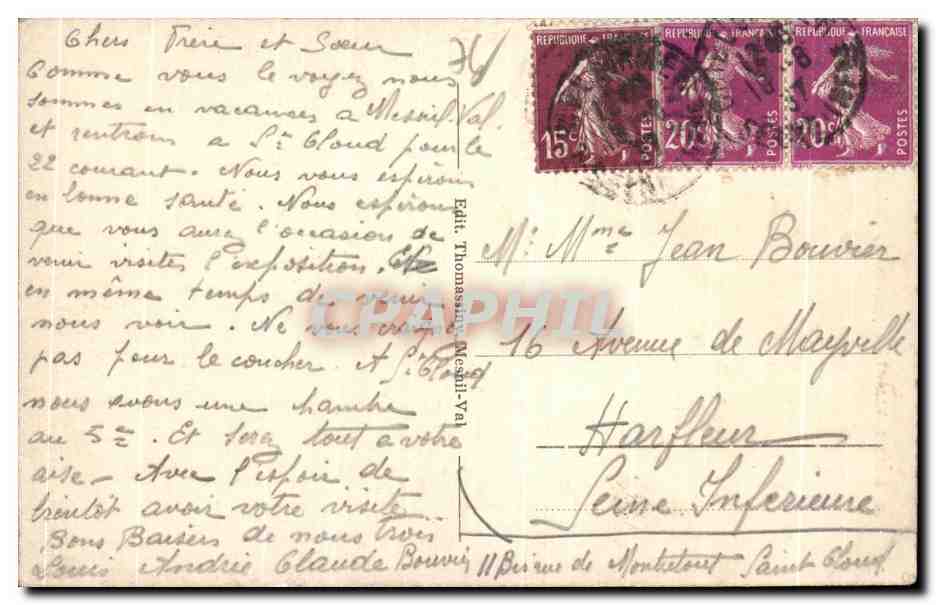 Chers Frère et Sœur
Comme vous le voyez nous
sommes en vacances a Mesnil-Val.
et rentrons a St Cloud pour le
22 courant. Nous vous espérons
en bonne santé. Nous espérons
que vous aurez l'occasion de
venir visiter l'exposition. Et
en même temps de venir
nous voir. Ne vous craignez
pas pour le coucher. A St Cloud
nous avons une chambre
au 5e. Et serez tout a votre
aise - Avec l'espoir de
bientôt avoir votre visite
Bons Baisers de nous trois
Louis Andrée Claude Bouvier 11 Bis rue de Montretout Saint Cloud
74
Edit. Thomassiny, Mesnil-Val
REPUBLIQUE FRANÇAISE
15c
POSTES
REPUBLIQUE FRANÇAISE
20c
POSTES
REPUBLIQUE FRANÇAISE
20c
POSTES
M. Mme Jean Bouvier
16 Avenue de Mayville
Harfleur
Seine Inferieure
CPAPHIL